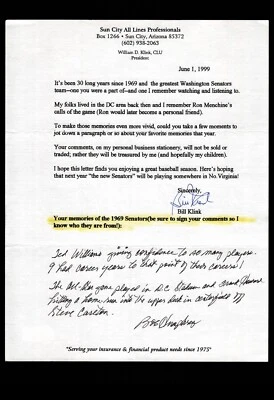 Sun City All Lines Professionals
Box 1246 • Sun City, Arizona 85372
(602) 938-2063
William D. Klink, CLU
President
June 1, 1999
It's been 30 long years since 1969 and the greatest Washington Senators
team--one you were a part of--and one I remember watching and listening to.
My folks lived in the DC area back then and I remember Ron Menchine's
calls of the game (Ron would later become a personal friend).
To make those memories even more vivid, could you take a few moments to
jot down a paragraph or so about your favorite memories that year.
Your comments, on my personal business stationery, will not be sold or
traded; rather they will be treasured by me (and hopefully my children).
I hope this letter finds you enjoying a great baseball season. Here's hoping
that next year "the new Senators" will be playing somewhere in No.Virginia!
Sincerely,
Bill Klink
Bill Klink
Your memories of the 1969 Senators(be sure to sign your comments so I
know who they are from!):
Ted Williams giving confidence to so many players.
9 had career years to that point of their careers!
The All-Star game played in D.C. Stadium and Frank Howard
hitting a home run into the upper deck in centerfield off
Steve Carlton.
Bob Humphreys
"Serving your insurance & financial product needs since 1975"